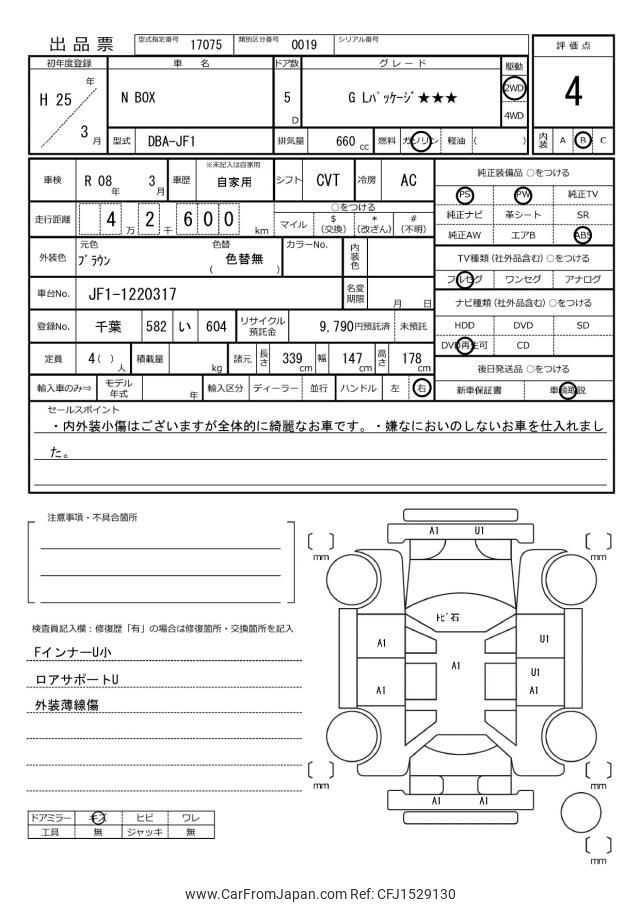 出品票
型式指定番号 17075 類別区分番号 0019 シリアル番号
評価点
4
内装 A B C
初年度登録 車名 ドア数 グレード 駆動
H 25 年 3 月
N BOX
5 D
G Lパッケージ★★★
2WD
4WD
型式 DBA-JF1 排気量 660 cc 燃料 ガソリン 軽油 ( )
車検 R 08 年 3 月 車歴 ※未記入は自家用 自家用 シフト CVT 冷房 AC
走行距離 4 2 6 0 0 万 千 km
○をつける
マイル $ (交換) * (改ざん) # (不明)
外装色 元色 ブラウン 色替 ( 色替無 ) カラーNo. 内装色
車台No. JF1-1220317 名変期限 月 日
登録No. 千葉 582 い 604 リサイクル預託金 9,790円預託済 未預託
定員 4( ) 人 積載量 kg 諸元 長さ 339 cm 幅 147 cm 高さ 178 cm
輸入車のみ⇒ モデル年式 年 輸入区分 ディーラー 並行 ハンドル 左 右
純正装備品 ○をつける
PS PW 純正TV
純正ナビ 革シート SR
純正AW エアB ABS
TV種類 (社外品含む) ○をつける
フルセグ ワンセグ アナログ
ナビ種類 (社外品含む) ○をつける
HDD DVD SD
DVD再生可 CD
後日発送品 ○をつける
新車保証書 車輌取説
セールスポイント
・内外装小傷はございますが全体的に綺麗なお車です。・嫌なにおいのしないお車を仕入れまし
た。
注意事項・不具合箇所
検査員記入欄：修復歴「有」の場合は修復箇所・交換箇所を記入
FインナーU小
ロアサポートU
外装薄線傷
ドアミラー キズ ヒビ ワレ
工具 無 ジャッキ 無
A1 U1
mm mm
トビ石
A1 U1
A1
A1 U1 A1
mm mm
A1 A1
mm
www.CarFromJapan.com Ref: CFJ1529130